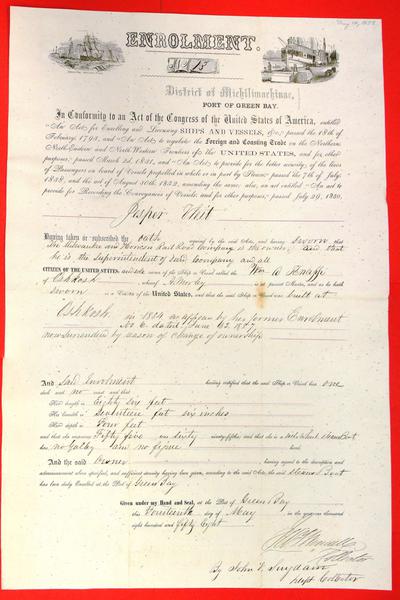 May 14, 1858
ENROLMENT.
No 13
District of Michilimackinac,
PORT OF GREEN BAY.
In Conformity to an Act of the Congress of the United States of America, entitled
"An Act for Enrolling and Licensing SHIPS AND VESSELS, &c., passed the 18th of
February, 1793, and "An Act to regulate the Foreign and Coasting Trade on the Northern,
North-Eastern and North-Western Frontiers of the UNITED STATES, and for other
purposes," passed March 2d, 1831, and "An Act to provide for the better security of the lives
of Passengers on board of Vessels propelled in whole or in part by Steam," passed the 7th of July,
1838, and the act of August 30th, 1852, amending the same; also, an act entitled "An act to
provide for Recording the Conveyances of Vessels, and for other purposes," passed July 29, 1850,
Jasper Vliet
Having taken or subscribed the oath required by the said Act, and having sworn that
The Milwaukee and Horicon Rail Road Company is the owner, and that
he is the Superintendent of said Company and all
CITIZENS OF THE UNITED STATES, and sole owner of the Ship or Vessel called the Wm A Knapp
of Oshkosh whereof is at present Master, and as he hath
sworn is a Citizen of the United States, and that the said Ship or Vessel was built at
Oshkosh in 1854 as appear by her former Enrolment
No 6 dated June 1857
now surrendered by reason of change of ownership
And Said Enrolment having certified that the said Ship or Vessel has one
deck and no mast and that
Her length is Eighty six feet
Her breadth is Seventeen feet six inches
Her depth is Four feet
and that she measures Fifty five tons sixty ninety-fifths; and that she is a Steam Boat
has no Galley and no figure head.
And the said Owner having agreed to the description and
admeasurement above specified, and sufficient security having been given, according to the said Acts, the said Steam Boat
has been duly Enrolled at the Port of Green Bay
Given under my Hand and Seal, at the Port of Green Bay
this Fourteenth day of May in the year one thousand
eight hundred and fifty Eight
Collector
By John V. Suydam
Dept Collector